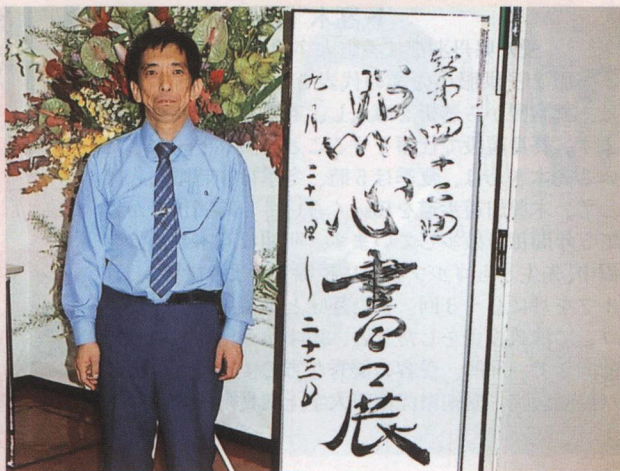 第四十二回
心書展
九月二十一日〜二十三日